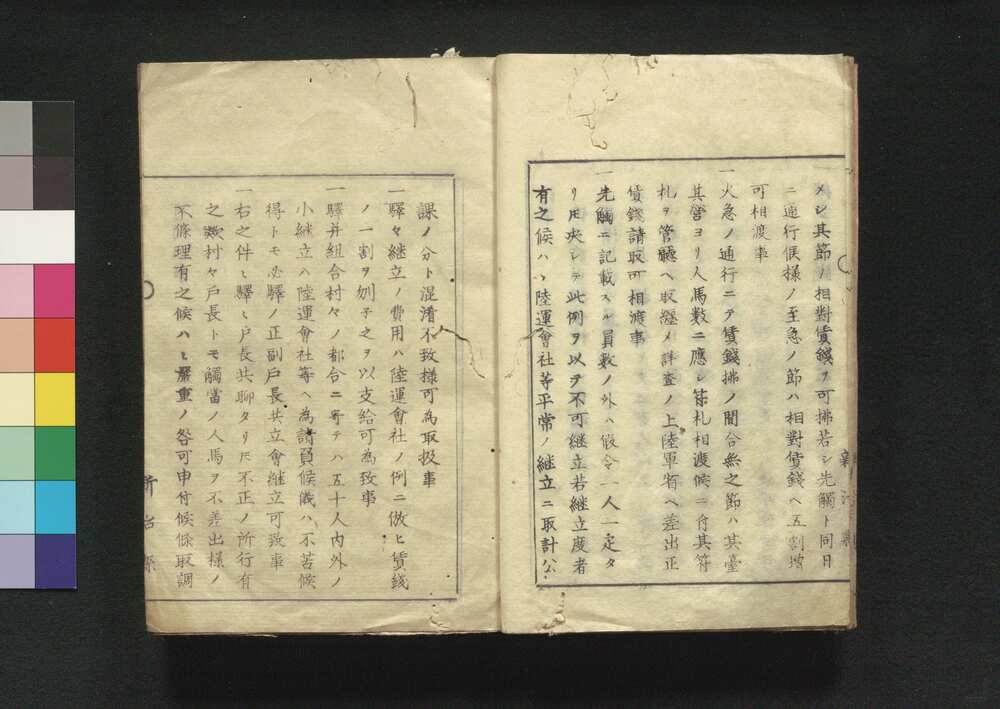 メシ其節ノ相對賃錢ヲ可拂若シ先觸ト同日
ニ通行候様ノ至急ノ節ハ相對賃錢ヘ五割増
可相渡事
一火急ノ通行ニテ賃錢拂ノ間合無之節ハ其臺
其營ヨリ人馬数ニ應シ符札相渡候ニ付其符
札ヲ管轄ヘ取纒メ詳査ノ上陸軍省ヘ差出正
賃錢請取可相渡事
一先觸ニ記載スル員数ノ外ハ假令一人一疋タ
リ圧央シテ此例ヲ以テ不可継立若継立度者
有之候ハヽ陸運會社等平常ノ継立ニ取計公
課ノ分ト混淆不致様可為取扱事
一驛々継立ノ費用ハ陸運會社ノ例ニ倣ヒ賃錢
ノ一割ヲ刎子之ヲ以支給可為致事
一驛并組合村々ノ都合ニ寄テハ五十人内外ノ
小継立ハ陸運會社等ヘ為請負候儀ハ不苦候
得トモ必驛ノ正副戸長共立會継立可致事
一右之件々驛々戸長共聊タリ圧不正ノ所行有
之数村々戸長トモ觸當ノ人馬ヲ不差出様ノ
不條理有之候ハヽ嚴重ノ咎可申付候條取調
新治縣